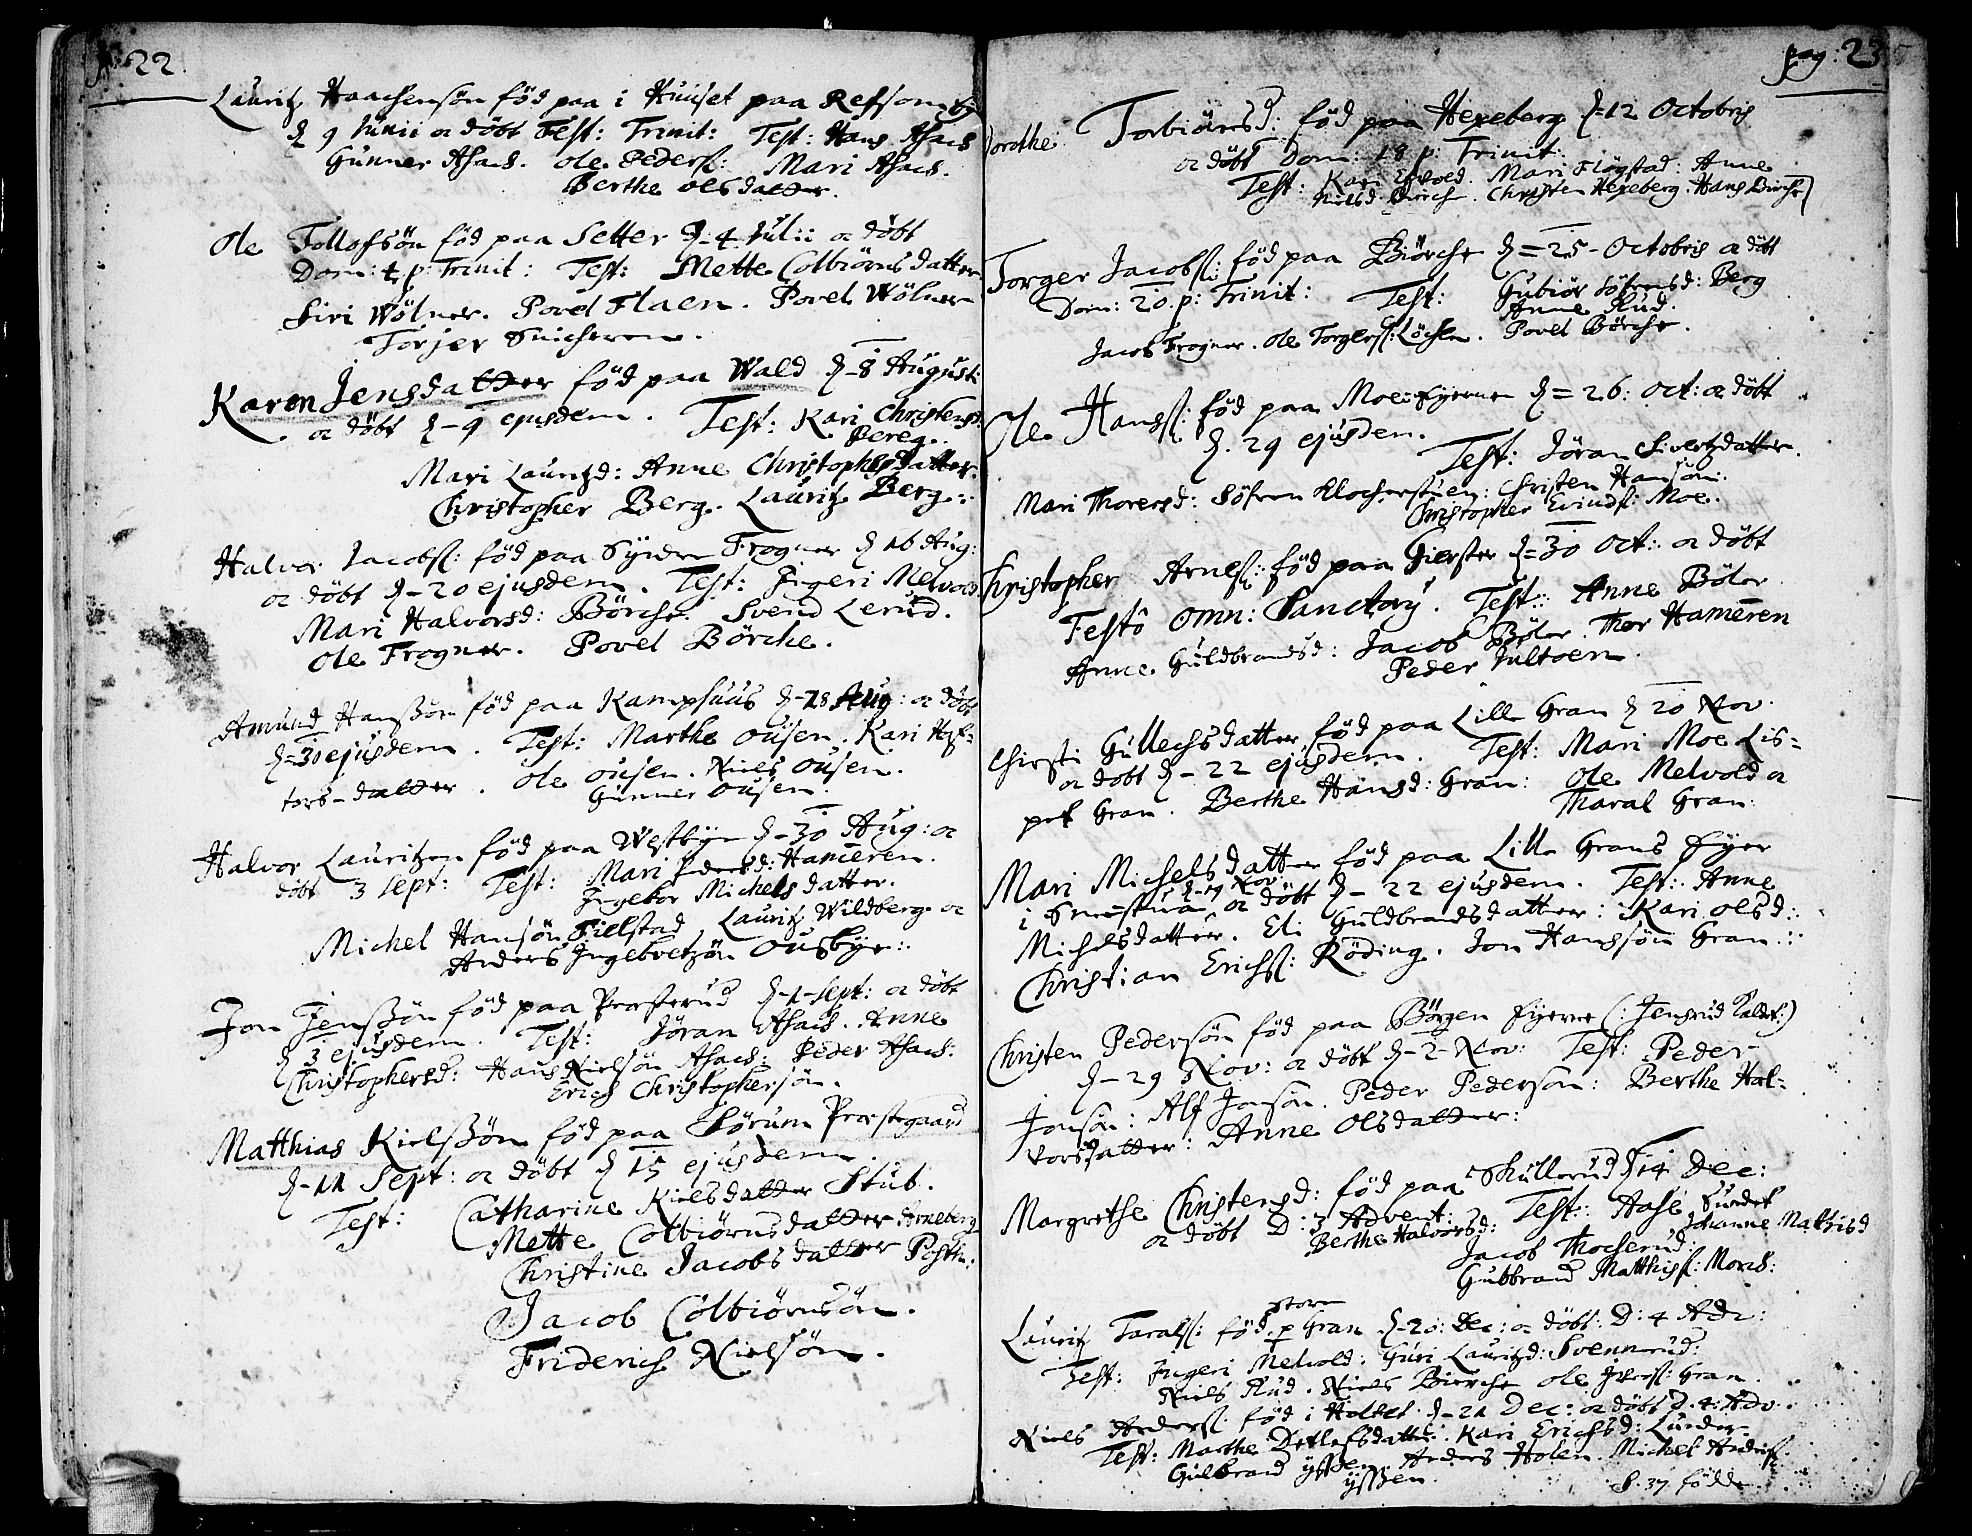 p: 22.
Lauritz Haachensøn fød paa i Huuset paa Refsom
d 9 Junii oc døbt Fest: Trinit: Test: Hans Asach
Gunner Asach. Ole Peders: Mari Asach.
Berthe Olsdatter.
Ole Tollofsøn fød paa Setter d. 4 Julii oc døbt
Dom: 4 p: Trinit: Test: Mette Colbiørnsdatter
Siri Wølner. Povel Flaen. Povel Wølner
Torjer Snicheren.
Karen Jensdatter fød paa Wald d. 8 Augusti
oc døbt d. 9 ejusdem. Test: Kari Christensd
Bereg.
Mari Lauritzd: Anne Christophersdatter.
Christopher Berg. Lauritz Berg.
Halvor Jacobs: fød paa Syndre Frogner d 16 Aug:
oc døbt d. 20 ejusdem. Test: Jngeri Melvold
Mari Halvorsd: Børche. Svend Lerud.
Ole Frogner. Povel Børche.
Amund Hanssøn fød paa Kamphuus d. 28 Aug: oc døbt
d. 30 ejusdem. Test: Marthe Ousen. Kari
tors-datter. Ole Ousen. Niels Ousen.
Gunner Ousen.
Halvor Lauritzen fød paa Westbye d. 30 Aug: oc
døbt 3 Sept: Test: Mari Hameren.
Jngebor Michelsdatter.
Michel Hansøn Tillstad Lauritz Wildberg oc
Anders Jngebretzøn Ousbye.
Jon Jenssøn fød paa Præsterud d. 1 Sept: oc døbt
d 3 ejusdem. Test: Jøran Asach. Anne
Christophersd: Hans Nielsøn Asach: Peder Asach:
Erich Christophersøn.
Matthias Nielssøn fød paa Sørum Præstegaard
d. 11 Sept: oc døbt d 15 ejusdem.
Test: Catharine Nielsdatter Stub.
Mette Colbiørnsdatter Arneberg
Christine Jacobsdatter Posth:
Jacob Colbiørnsøn.
Friderich Nielsøn.
pag: 23
Dorthe Torbiørnsd: fød paa Hexeberg d. 12 Octobris
oc døbt Dom: 18 p: Trinit:
Test: Kari Mari Fløgstad. Anne
Nielsd Birche. Christen Hexeberg. Hans Birche
Torger Jacobs: fød paa Biørche d. 25 Octobris oc døbt
Dom: 20 p: Trinit: Test: Gubiør Søfrensd: Berg
Anne Rud.
Jacob Frogner. Ole Torgers: Løchen. Povel Børche.
Ole Hanss: fød paa Moe-Eyerne d. 26. Oct: oc døbt
d. 29 ejusdem. Test: Jøran Sivertzdatter.
Mari Thoresd: Søfren Klocherstuen: Christen Hansøn:
Christopher Evinds: Moe.
Christopher Arnes: fød paa Gierster d. 30 Oct: oc døbt
Festo Omn: Sanctorum. Test: Anne Bøler
Anne Guldbrandsd: Jacob Bøler. Thor Hameren
Peder Jultoen.
Chirsti Gullechsdatter fød paa Lille Gran d 20 Nov.
oc døbt d. 22 ejusdem. Test: Mari Moe Lis-
pet Gran. Berthe Hansd: Gran: Ole Melvold oc
Tharal Gran.
Mari Michelsdatter fød paa Lille Grans Eyer
i Snestua d. 19 Nov oc døbt d. 22 ejusdem. Test: Anne
Michelsdatter. Eli Guldbrandsdatter: Kari Olsd:
Christian Erichs: Røding. Jon Hanssøn Gran.
Christen Pedersøn fød paa Børgen Eyerne (: Jensrud Kaldet:)
d. 29 Nov: oc døbt d. 2 Nov: Test: Peder
Jonsøn: Alf Jonsøn. Peder Pedersøn: Berthe Hal-
vorsdatter: Anne Olsdatter:
Margrethe Christensd: fød paa Skullerud d 14 Dec:
oc døbt D: 3 Advent: Test: Aase Sundet
Berthe Halvorsd: Johanne Mathisd
Jacob Thocherud:
Gubbrand Matthiss: Monsd:
Lauritz Tarals: fød p Store Gran d. 20 Dec: oc døbt: D: 4 Adv:
Test: Jngeri Melvold: Guri Lauritzd: Svennerud:
Niels Rud. Niels Bierche Ole Jvers: Gran.
Niels Anders: fød i Holtet d. 21 Dec: oc døbt D. 4. Adv.
Test: Marthe Detlofsdatter. Kari Erichsd: Lunder-
Gulbrand Anders Holen. Michel Anders:
S. 37 fødde